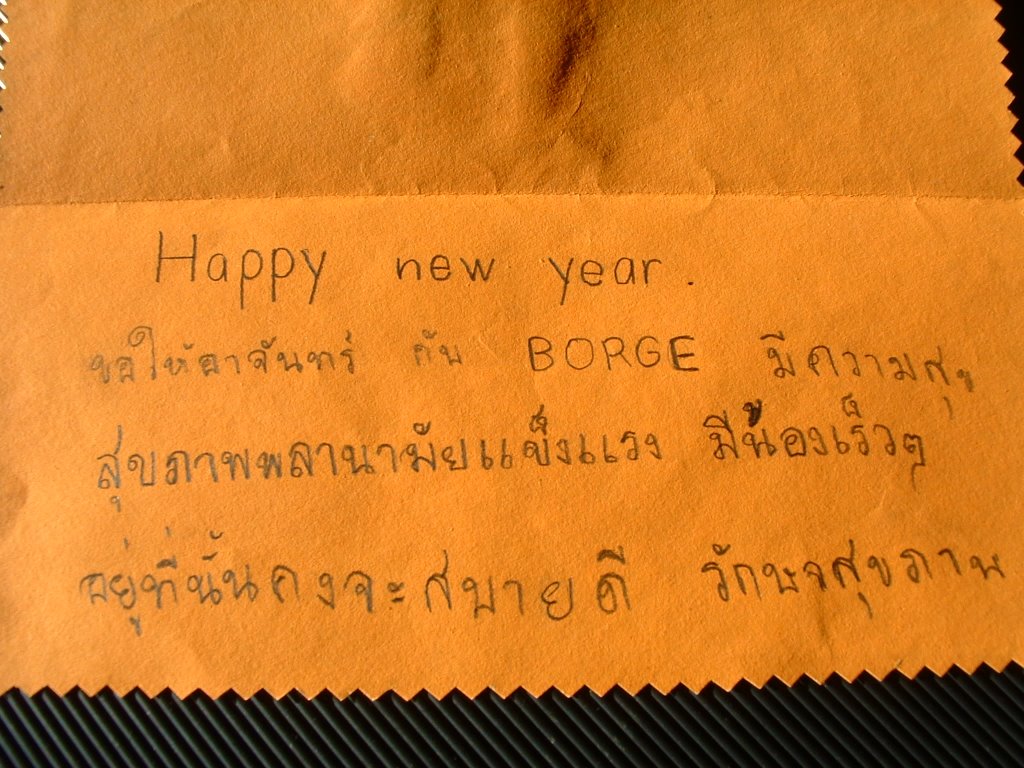 Happy new year.
ขอให้อาจันทร์ กับ BORGE มีความสุข
สุขภาพพลานามัยแข็งแรง มีน้องเร็วๆ
อยู่ที่นั้นคงจะสบายดี รักษาสุขภาพ